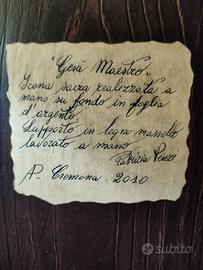 "Gesù Maestro"
Icona sacra realizzata a
mano su fondo in foglia
d'argento.
Supporto in legno massello
lavorato a mano
Patrizia
A - Cremona - 2010
subito